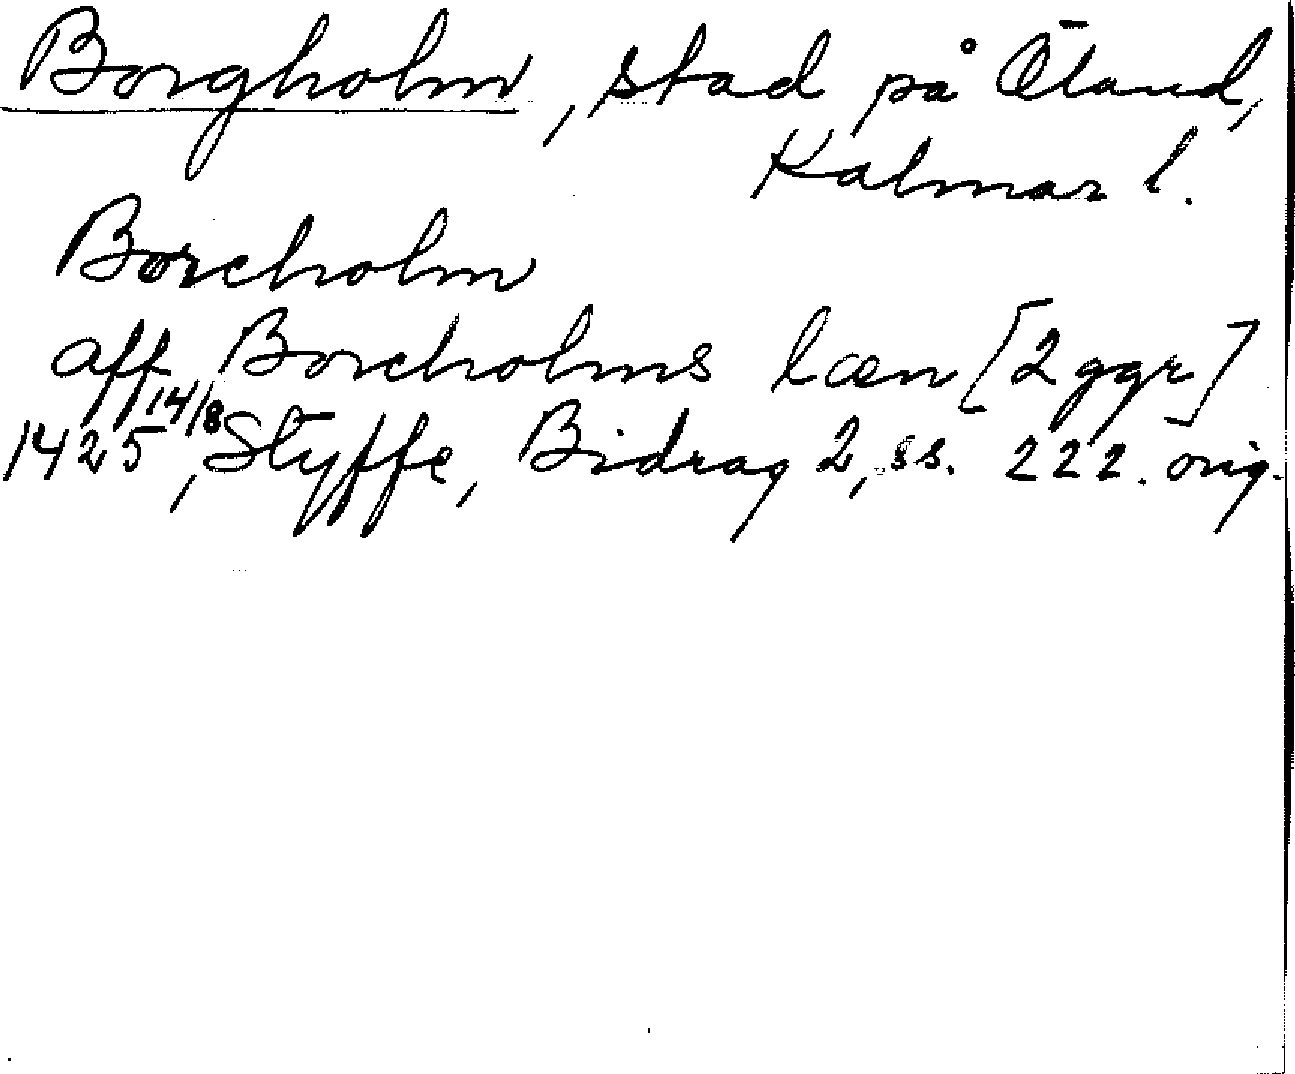 Borgholm, stad på Öland,
Kalmar l.
Borcholm
aff Borcholms læn [2 ggr]
1425 14/8, Styffe, Bidrag 2, ss. 222. orig.